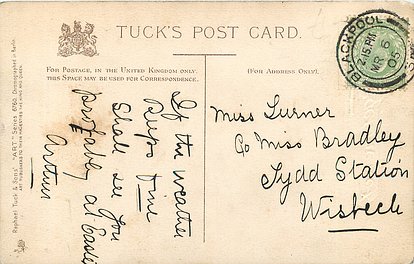 TUCK'S POST CARD.
FOR POSTAGE, IN THE UNITED KINGDOM ONLY,
THIS SPACE MAY BE USED FOR CORRESPONDENCE.
(FOR ADDRESS ONLY.)
If the weather
Keeps fine
Shall see you
probably at Easter
Arthur
Miss Turner
C/o Miss Bradley
Tydd Station
Wisbech
BLACKPOOL
2.15 PM
6
05
Raphael Tuck & Sons "ART" Series 6760.